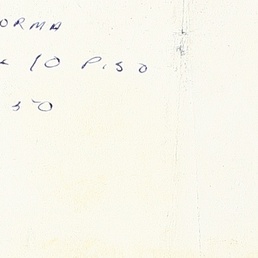 ORMA
10 PISO
30